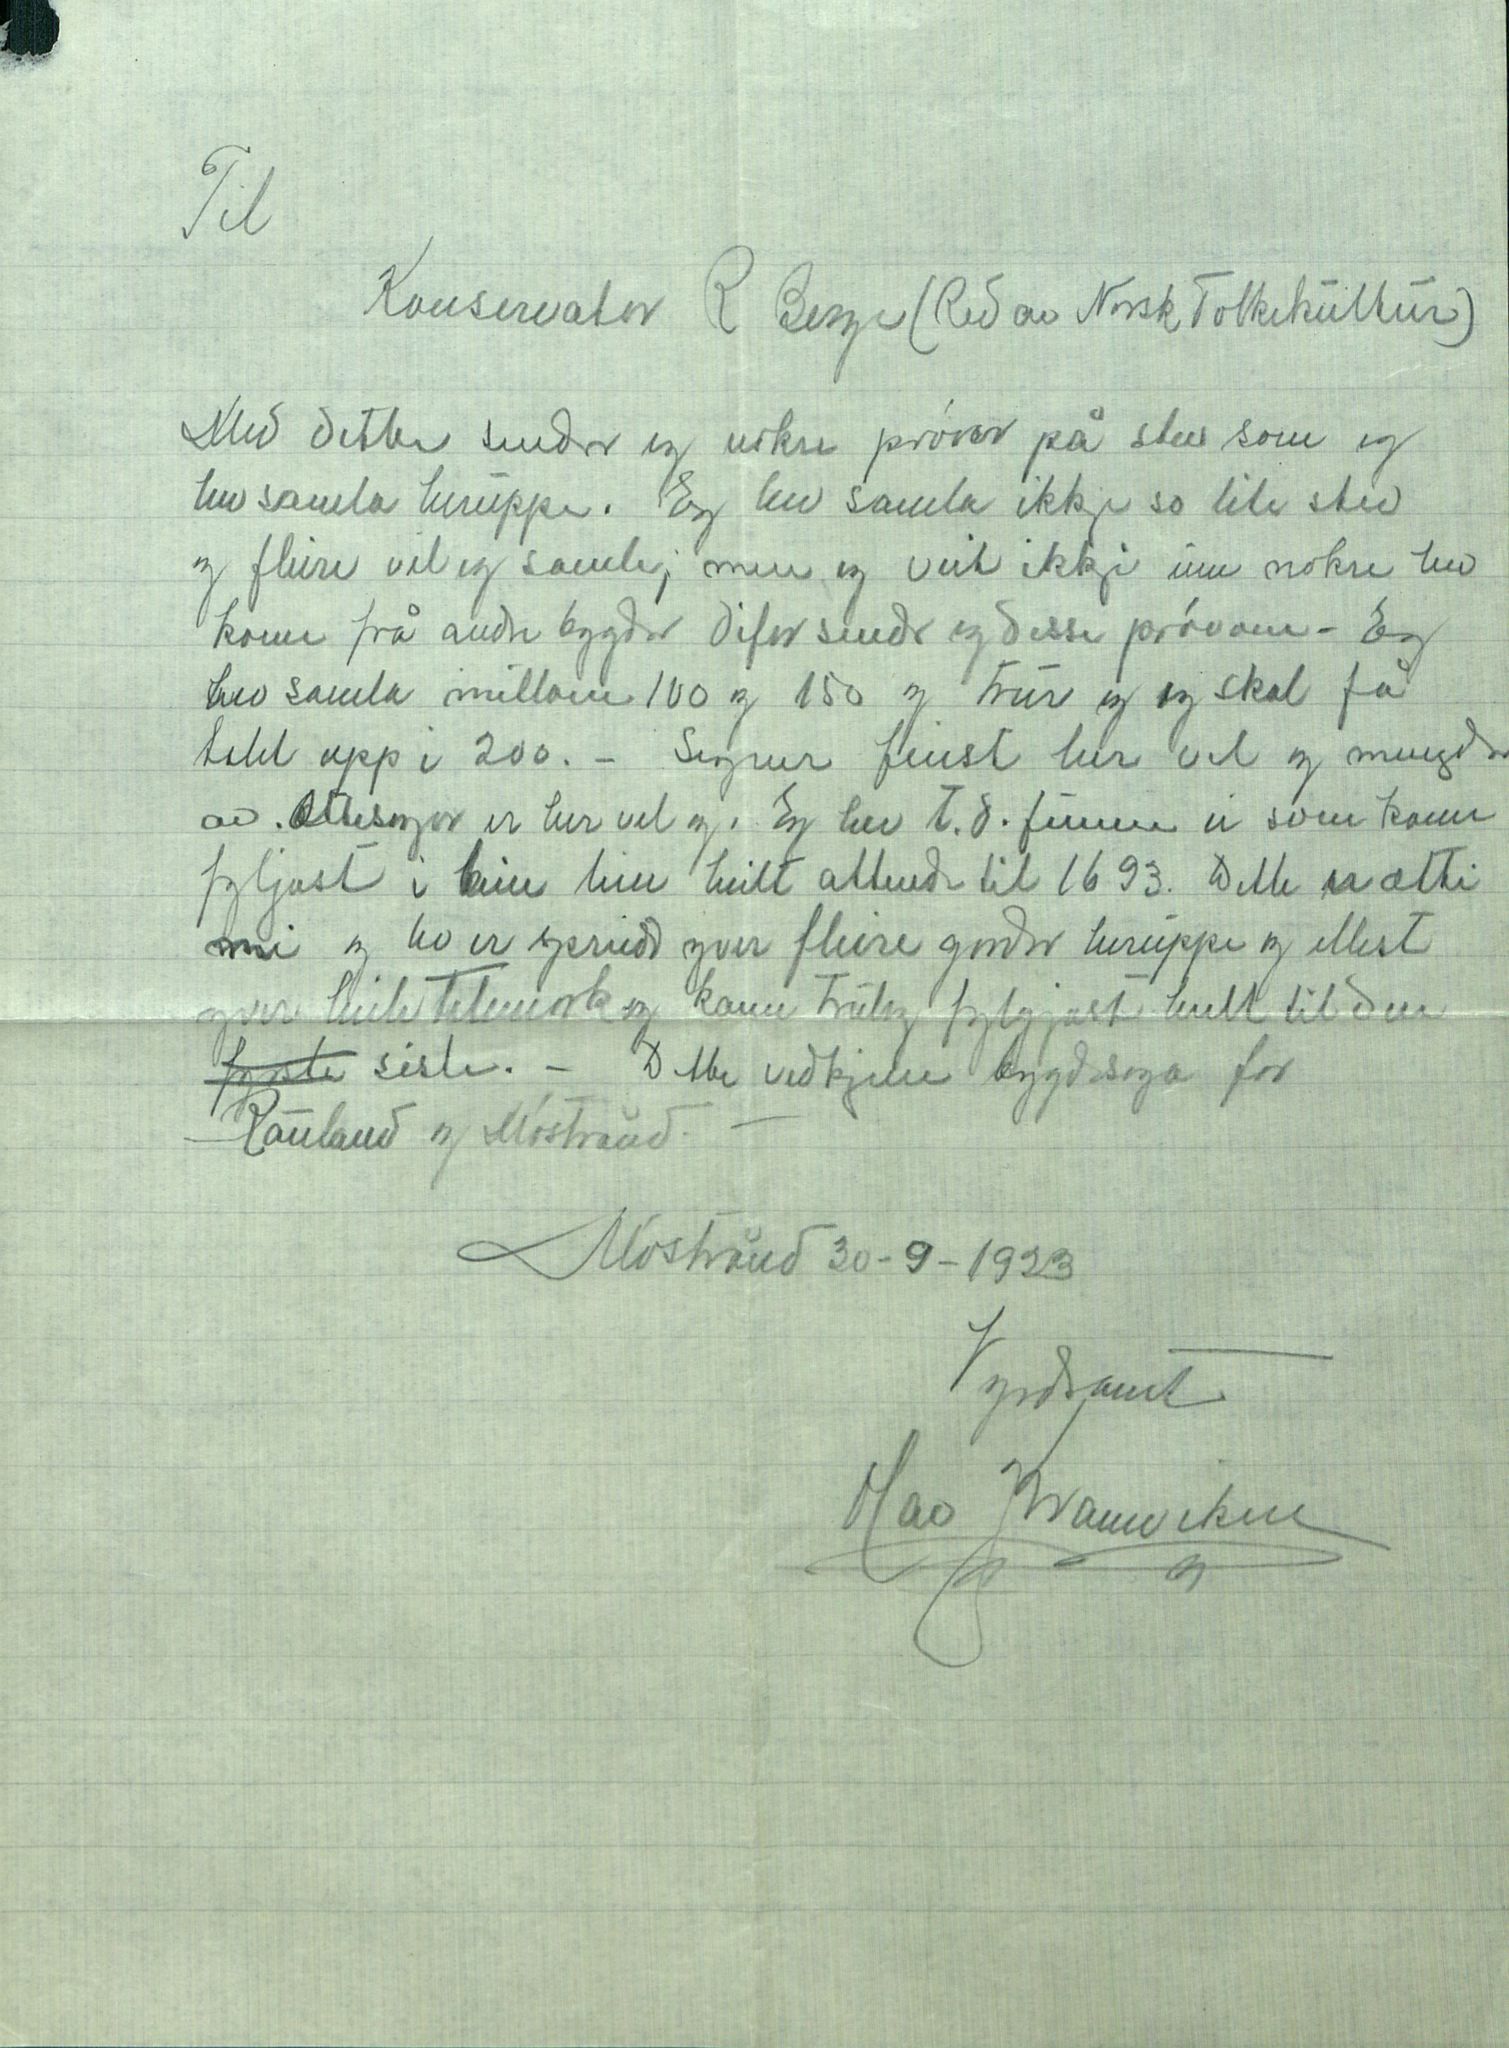 Til
Konservator R Berge (Red av Norsk Folkekultur)
Med dette sender eg nokre prøver på stev som eg
hev samla heruppe. Eg hev samla ikkje so lite stev
og fleire vil eg samle; men eg veit ikkje um nokre hev
kome frå andre bygder difor sender eg desse prøvone - Eg
hev samla millom 100 og 150 og trur og eg skal få
talet upp i 200. - Segner finst her vel og mengder
av. Ættesogor er her vel og. Eg hev t.d. funne ei som kann
fylgjast i hein heilt attende til 1693. Dette er ætti
mi og ho er spreidd yver fleire gardar heruppe og ellest
yver heile Telemork og kann truleg fylgjast heilt til den
fyrste siste. - Dette vedkjem bygdesoga for
Rauland og Møstrand. -
Møstrand 30-9-1923
Vyrdsamt
Olav Kvamviken